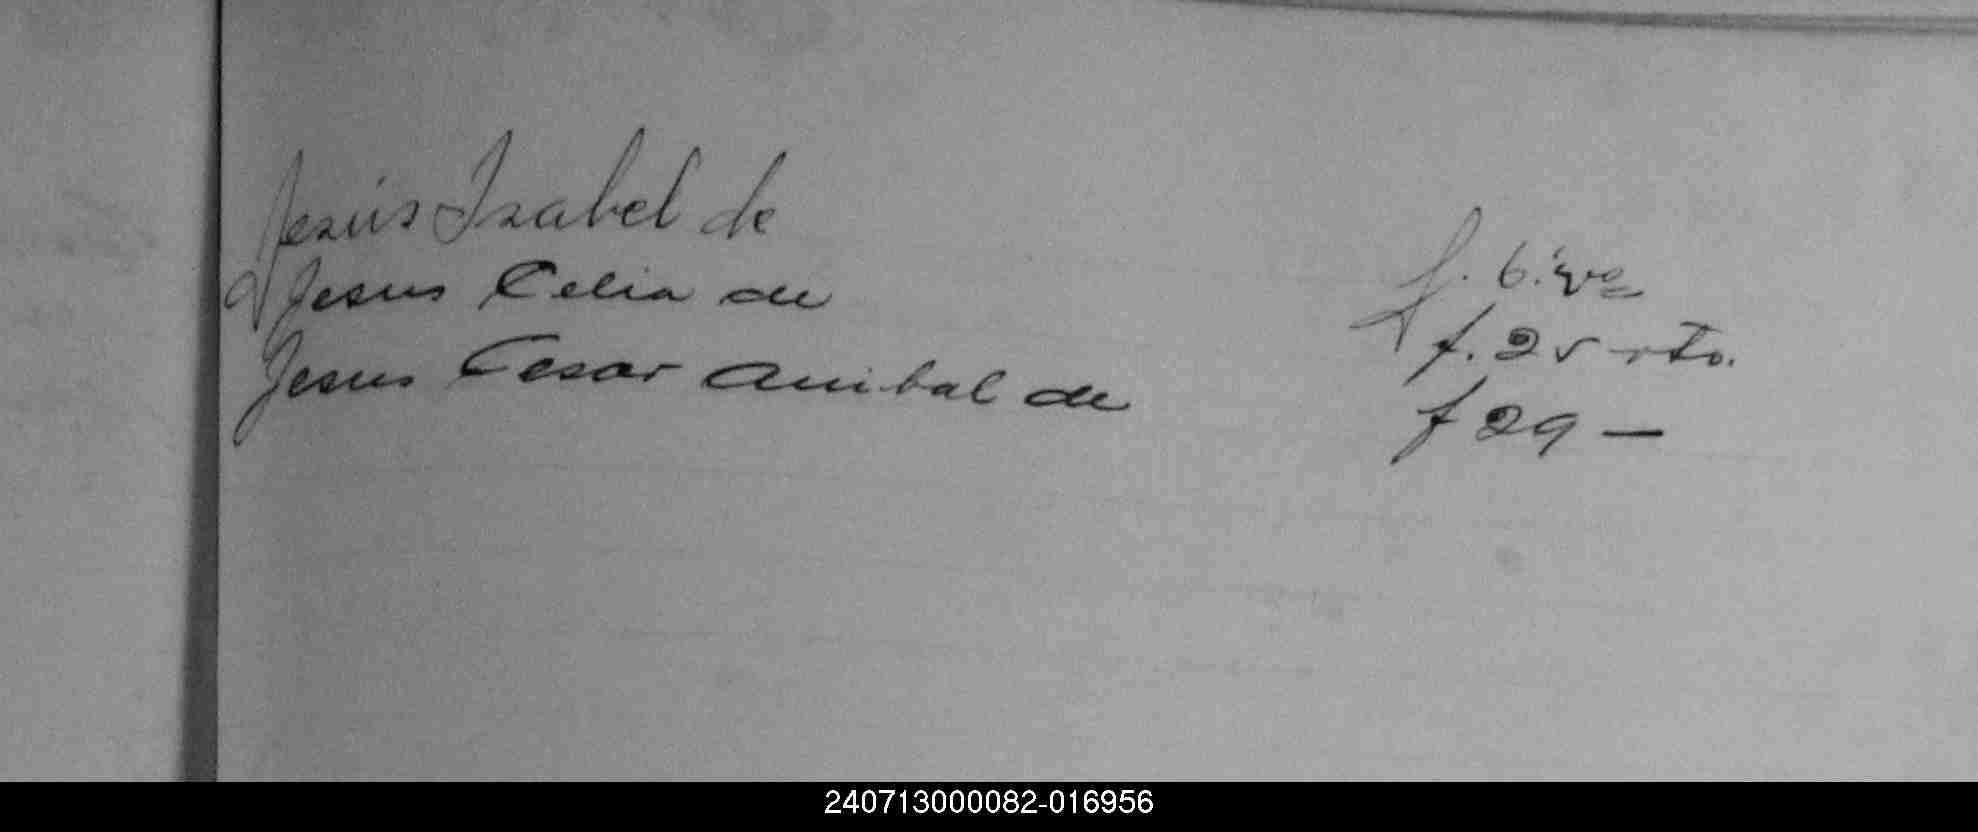 Jezús Izabel de f. 6. vo
Jesus Celia de f. 25 rto.
Jesus Cesar Anibal de f 29 —
240713000082-016956